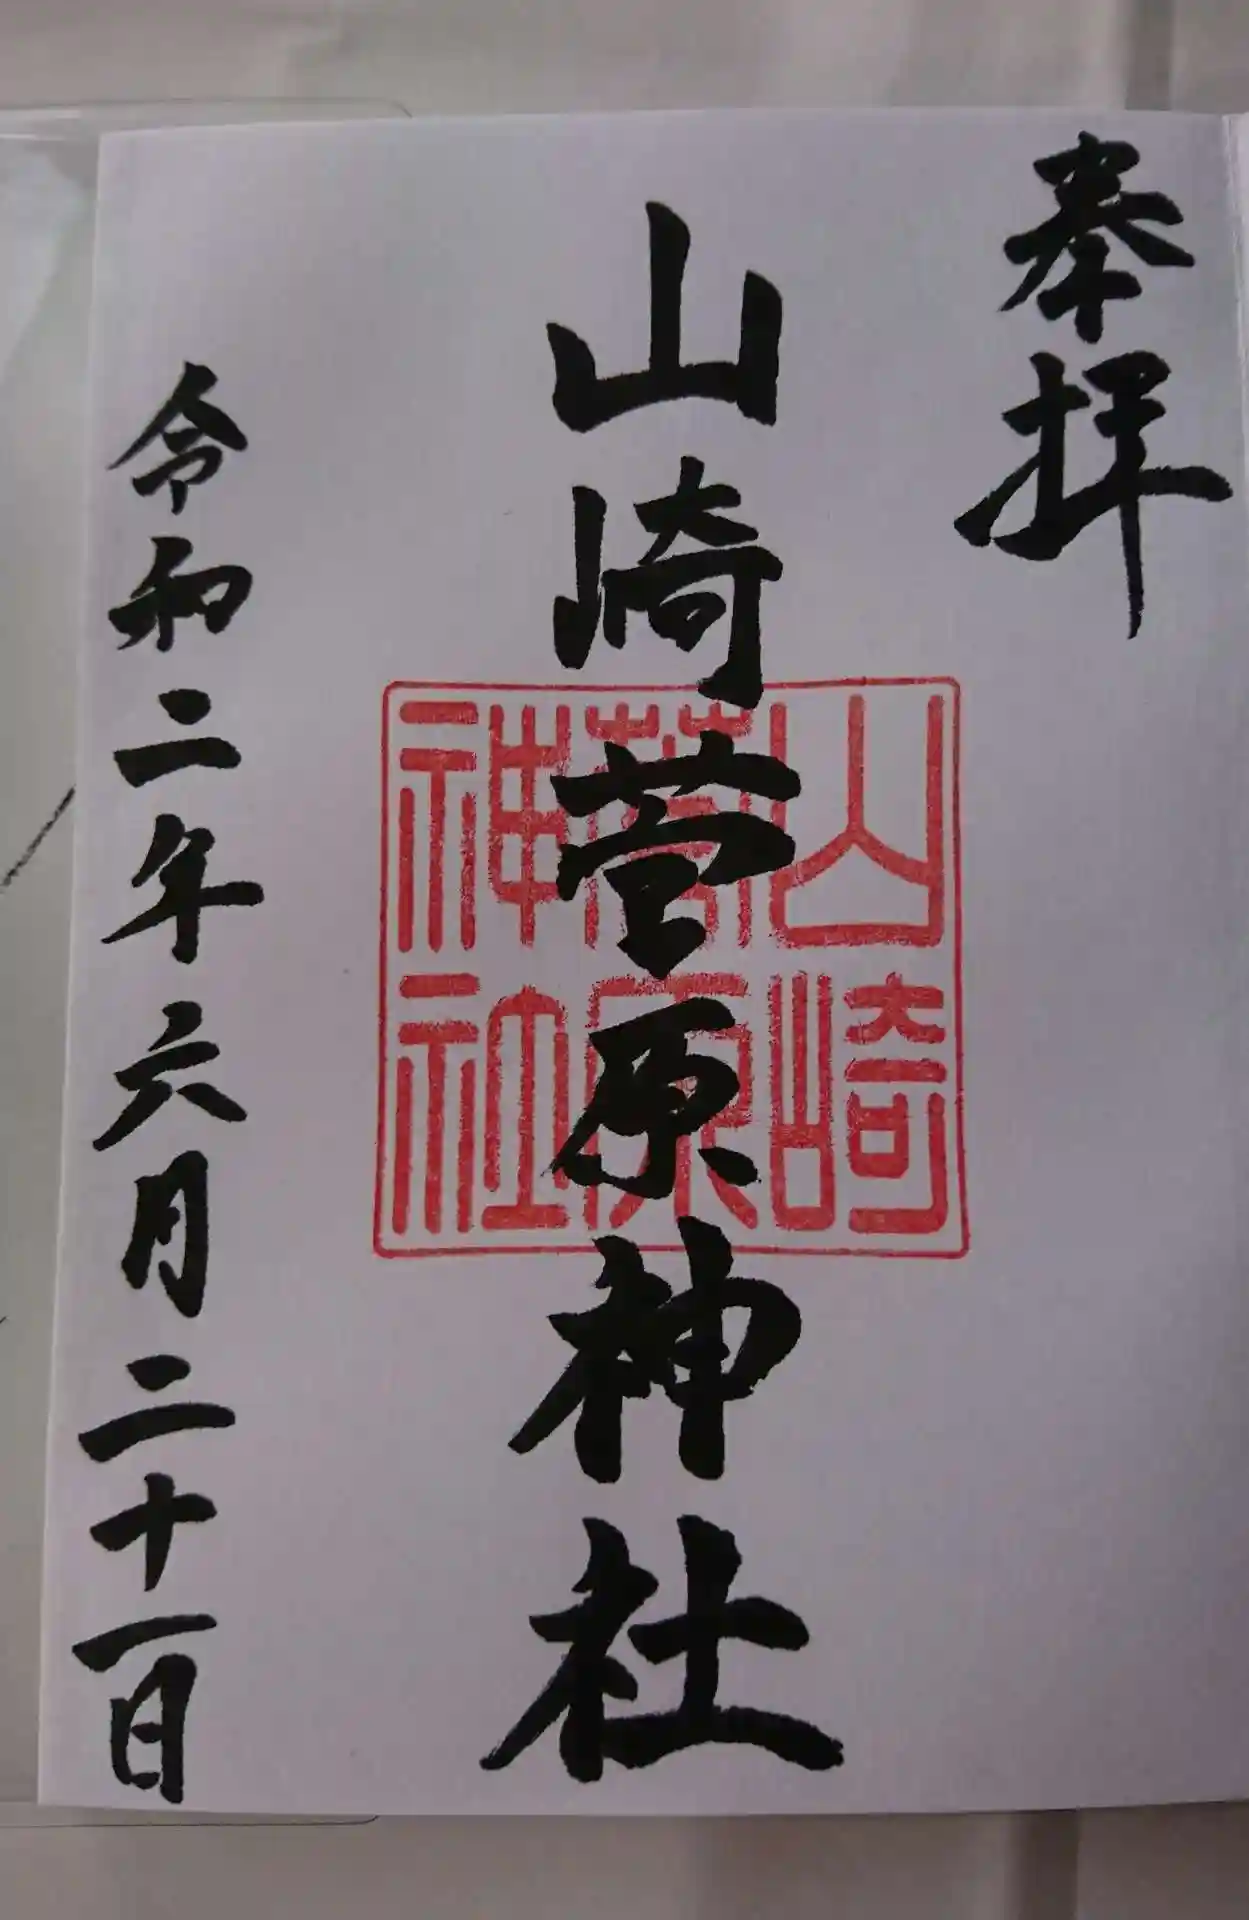 奉拝
山崎菅原神社
山崎
菅原
神社
令和二年六月二十一日